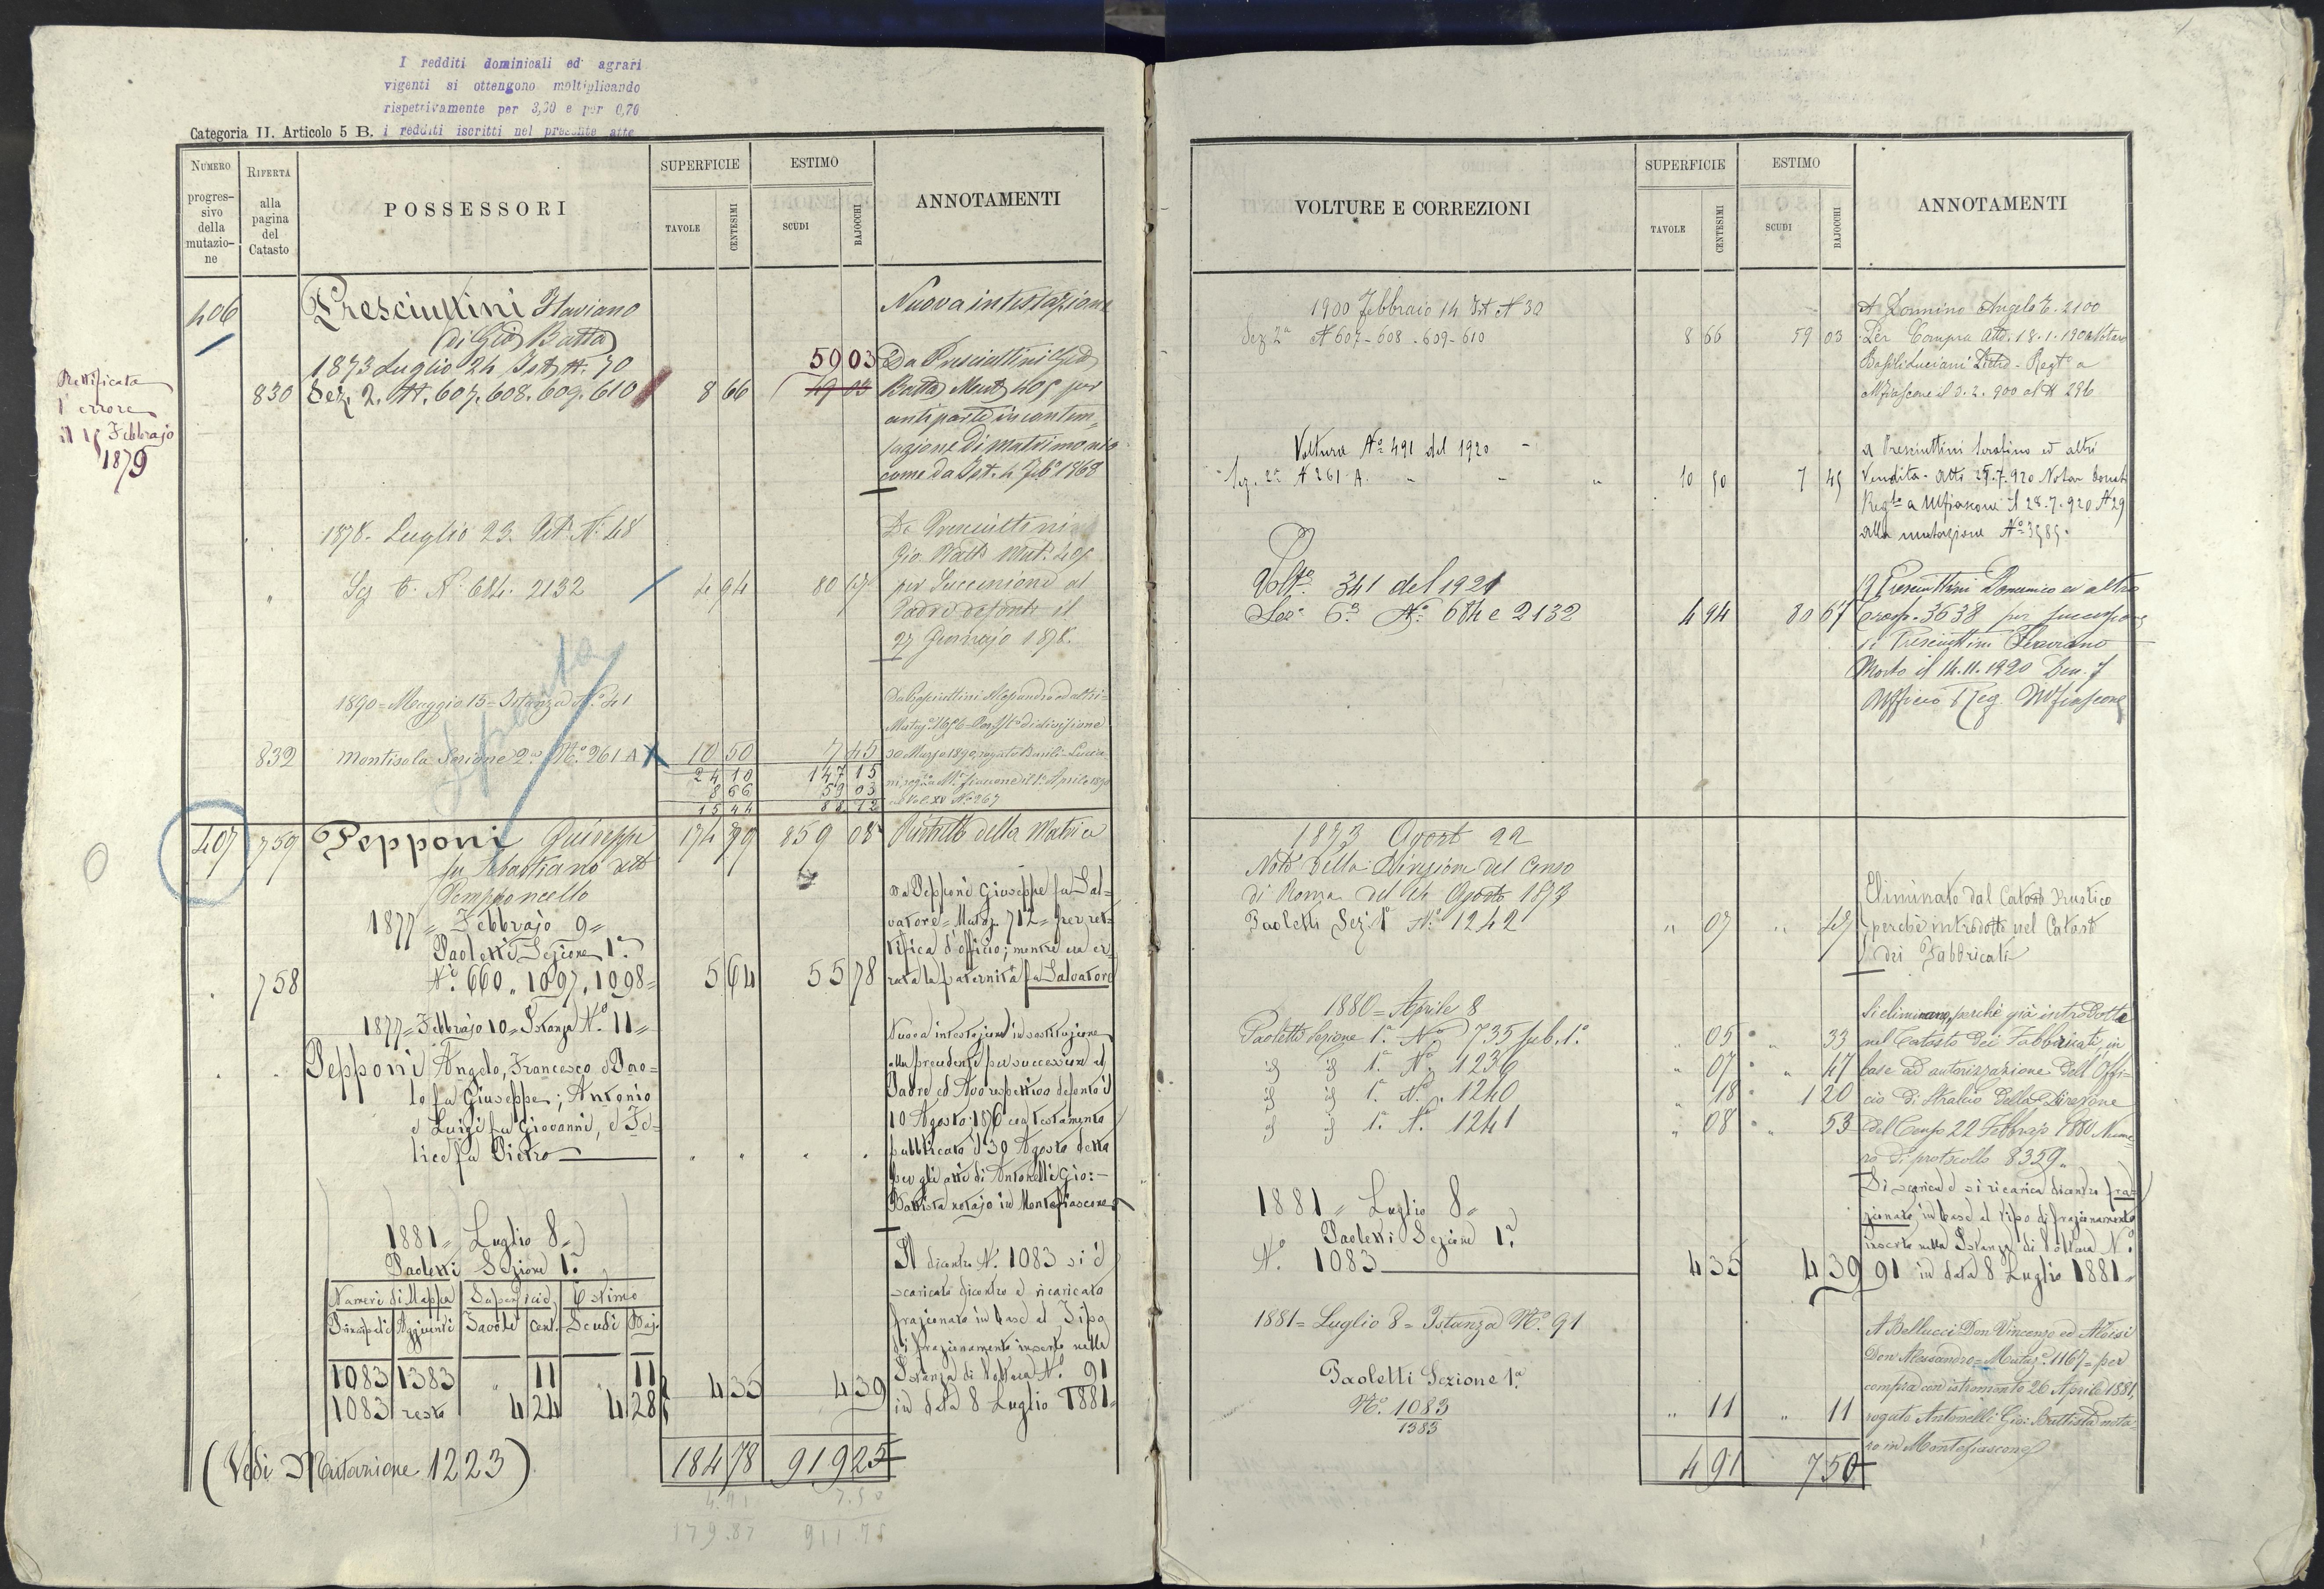 I redditi dominicali ed agrari
vigenti si ottengono moltiplicando
rispettivamente per 3,20 e per 0,70
i redditi iscritti nel presente atto
Categoria II. Articolo 5 B.
NUMERO progressivo della mutazione
RIFERTA alla pagina del Catasto
POSSESSORI
SUPERFICIE
TAVOLE
CENTESIMI
ESTIMO
SCUDI
BAJOCCHI
ANNOTAMENTI
406
Presciuttini Flaviano
di Gio Batta
1873 Luglio 24 Ist N. 70
830 Sez. 2. N. 607. 608. 609. 610 8 66 59 03
Rettificata
l'errore
il 15 Febbrajo
1879
Nuova intestazione
Da Presciuttini Gio
Batta Mut 405 per
antiparte in contem=
plazione di matrimonio
come da Ist. 4 Feb. 1868
1878. Luglio 23. Ist. N. 48
Sez 6. N. 684. 2132 4 94 80 67
Da Presciuttini
Gio. Batta Mut. 405
per Successione al
Padre defonto il
27 Gennajo 1878.
1890 = Maggio 15 = Istanza N. 41
832 Montisola Sezione 2a N. 261 A 10 50 7 45
24 10 147 15
8 66 59 03
15 44 88 12
Mutaz. 1656
di divisione
30 Marzo 1890, rogato Basili-Luciani
il 1 Aprile 1890
Vol. XV N. 267
407 759 Pepponi Giuseppe 174 79 859 08
fu Sebastiano detto
Pempponcello
Ristretto della Matrice
1877 = Febbrajo 9 =
Paoletti Sezione 1a
758 N. 660. 1097. 1098 = 5 64 55 78
Da Pepponi Giuseppe fu Sal=
vatore = Mutaz. 712 = per ret=
tifica d'officio; mentre era er=
rata la paternità fu Salvatore
1877 = Febbrajo 10 = Istanza N. 11 =
Pepponi Angelo, Francesco e Pao=
lo fu Giuseppe; Antonio
e Luigi fu Giovanni, e Fe=
lice fu Pietro
Nuova intestazione in sostituzione
alla precedente per successione al
Padre ed Avo respettivo defonto il
10 Agosto 1876 con testamento
pubblicato il 30 Agosto detto
per gli atti di Antonelli Gio: =
Battista notajo in Montefiascone
1881 = Luglio 8 =
Paoletti Sezione 1a
Numeri di Mappa Superficie Estimo
Principali Aggiunti Tavole Cent. Scudi Baj.
1083 1383 " 11 " 11
1083 resto 4 24 4 28
4 35 4 39
Il dicontro N. 1083 si è
scaricato dicontro e ricaricato
frazionato in base al Tipo
di frazionamento inserto nella
Istanza di Voltura N. 91
in data 8 Luglio 1881 =
184 78 919 25
(Vedi Mutazione 1223)
4.91 7.50
179.87 911.75
VOLTURE E CORREZIONI
SUPERFICIE
TAVOLE
CENTESIMI
ESTIMO
SCUDI
BAJOCCHI
ANNOTAMENTI
1900 Febbraio 14 Ist N 30
Sez 2a N 607 - 608 - 609 - 610 8 66 59 03
A Donnino Angelo 2100
Per Compra Atto 18.1.1900 Notaro
Basili Luciani Pietro - Regto a
Mfiascone il 3.2.900 al N 296
Voltura No 491 del 1920
Sez. 2a N 261 A. 10 50 7 45
a Presciuttini Serafino ed altri
Vendita - atto 25.7.920 Notar
Regto a Mfiascone il 28.7.920 N 29
alla mutazione No 3585.
Volta 341 del 1921
Sez. 6a No 684 e 2132 4 94 80 67
A Presciuttini Domenico ed altri
3638 per successione
di Presciuttini Flaviano
Morto il 14.11.1920 Den. 7
Ufficio Reg. Mfiascone
1873 Agosto 22
Nota della Direzione del Censo
di Roma del Agosto 1873
Paoletti Sez. 1a N. 1242 " 07 " 47
Eliminato dal Catasto Rustico
perchè introdotto nel Catasto
dei Fabbricati
1880 = Aprile 8
Paoletti Sezione 1a No 735 sub. 1o " 05 " 33
id id 1a No 1236 " 07 " 47
id id 1a No 1240 " 18 1 20
id id 1a N. 1241 " 08 " 53
Si eliminano, perchè già introdotte
nel Catasto dei Fabbricati, in
base ad autorizzazione dell'Offi=
cio di Stralcio della Direzione
del Censo 22 Febbrajo 1880 Nume=
ro di protocollo 8359 =
1881 = Luglio 8 =
Paoletti Sezione 1a
No 1083 4 35 4 39
Si scarica e si ricarica dicontro fra=
zionato, in base al tipo di frazionamento
inserto nella Istanza di Voltura No
91 in data 8 Luglio 1881 =
1881 = Luglio 8 = Istanza No. 91
Paoletti Sezione 1a
No. 1083
1383 " 11 " 11
A Bellucci Don Vincenzo ed Aloisi
Don Alessandro = Mutaz. 1167 = per
compra con istromento 26 Aprile 1881,
rogato Antonelli Gio: Battista nota=
ro in Montefiascone
4 91 7 50